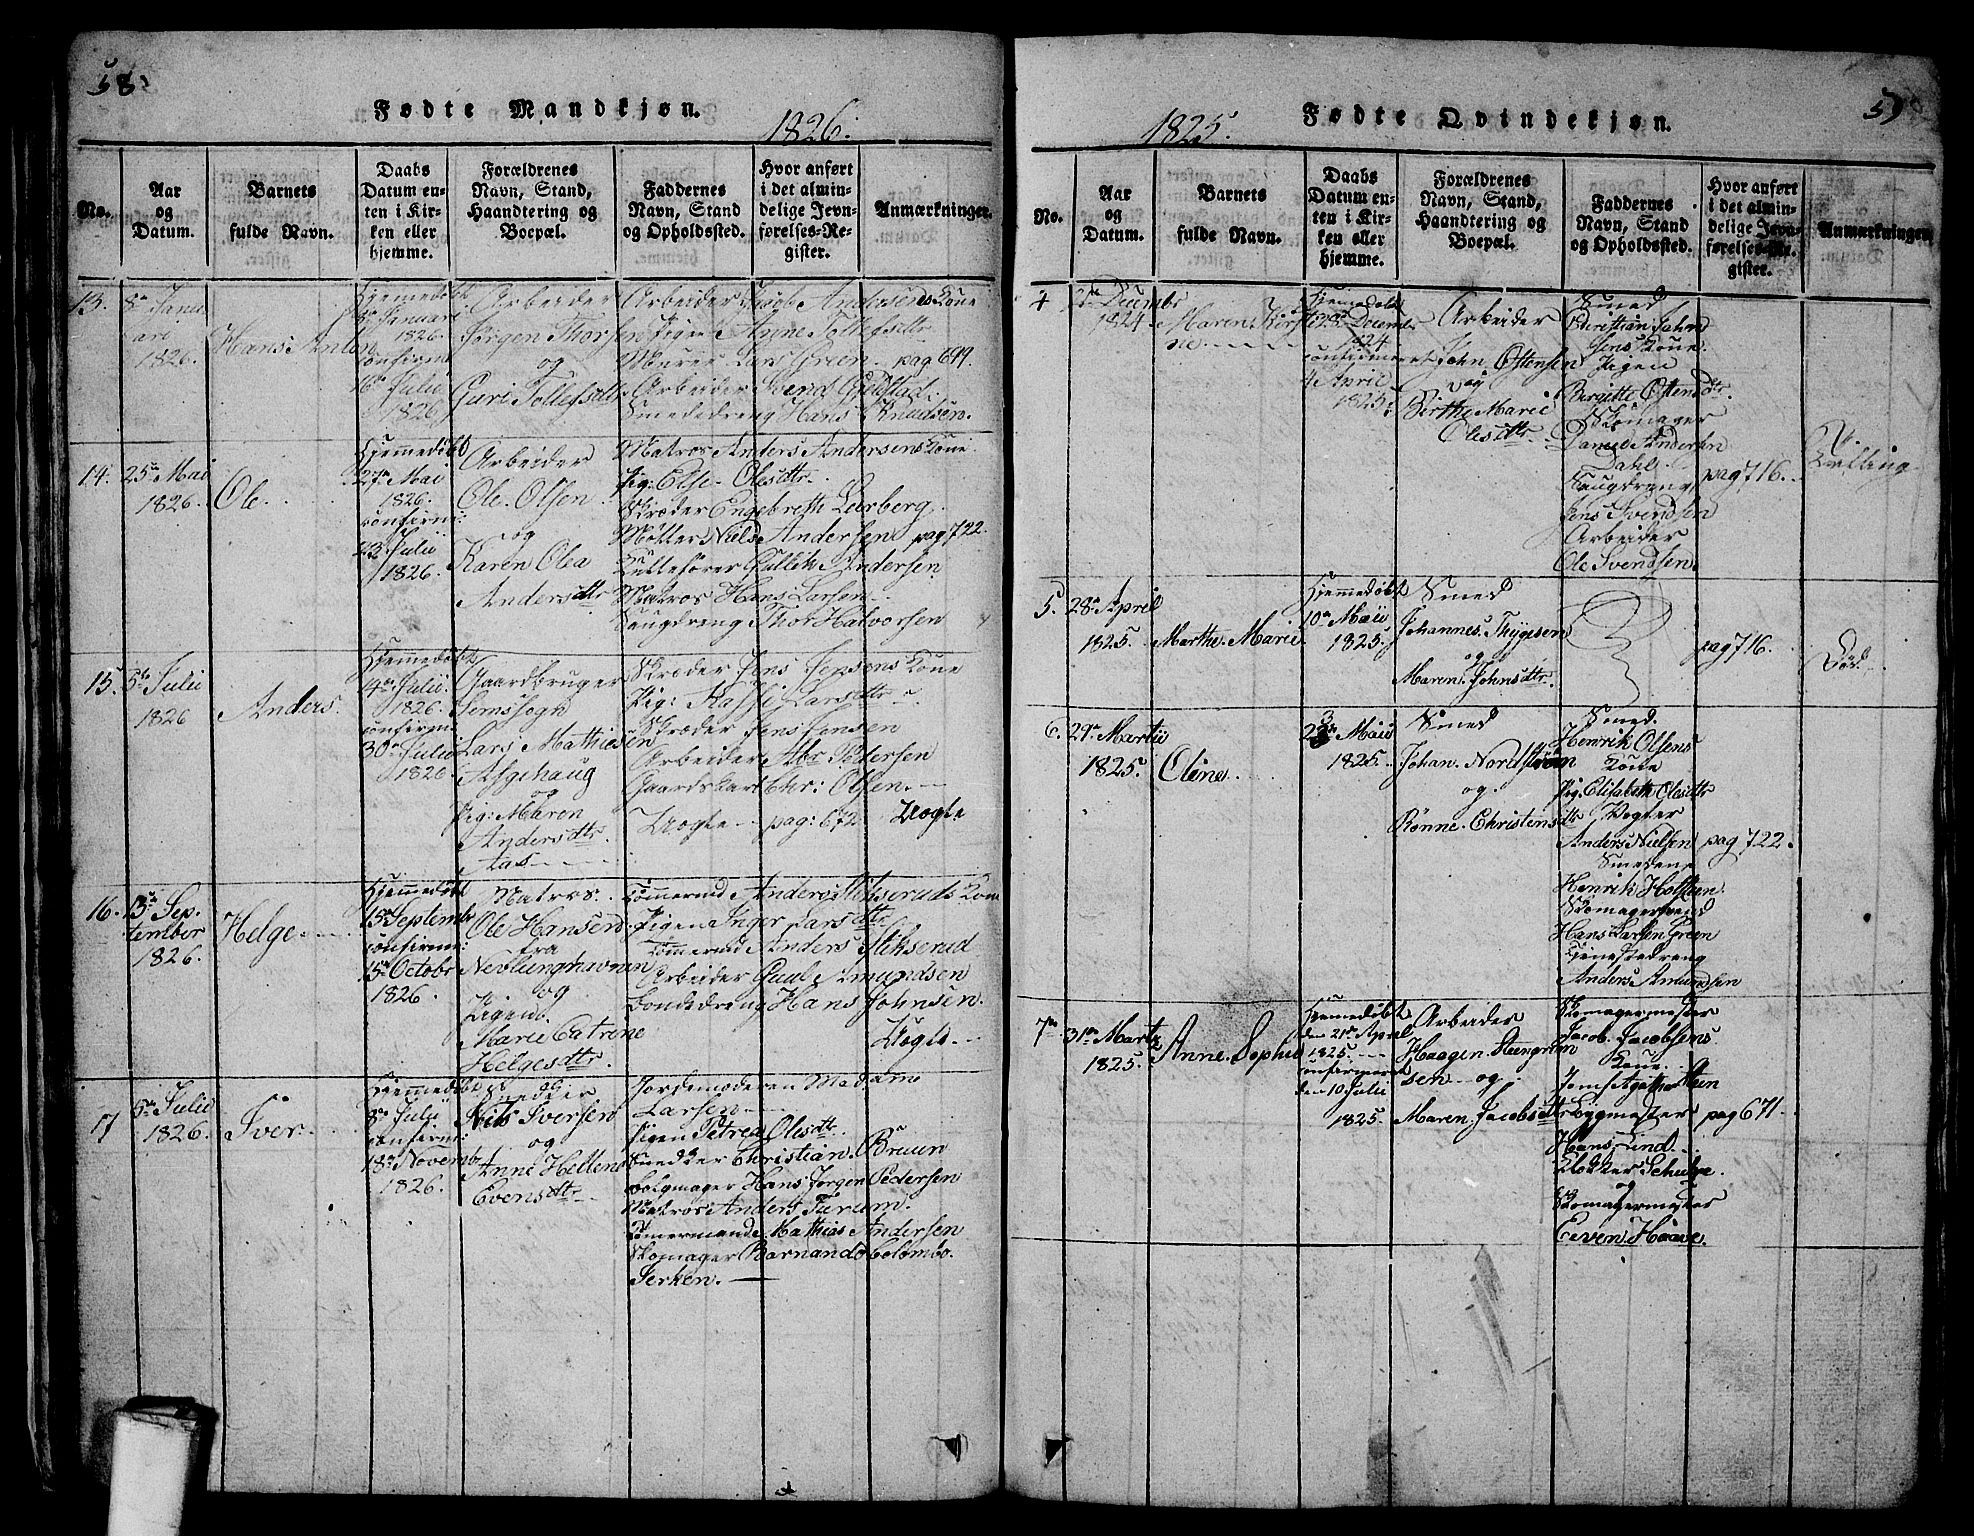 58.
Fødte Mandkjøn.
1826.
No.
Aar
og
Datum.
Barnets
fulde Navn.
Daabs
Datum en-
ten i Kir-
ken eller
hjemme.
Forældrenes
Navn, Stand,
Haandtering og
Boepæl.
Faddernes
Navn, Stand
og Opholdssted.
Hvor anført
i det almin-
delige Jevn-
førelses-Re-
gister.
Anmærkninger.
13.
8de Janu
ari
1826.
Hans Anton
Hjemmedøbt
8de Januari
1826.
confirm:
16de Julii
1826.
Arbeider
Jørgen Thorsen
og
Guri Tollefsdtr.
Arbeider Jacob Andersens Kone
Pigen Anne Tollefsdtr
Murer Lars Green.
Arbeider Svend Gjelstad.
Smededreng Hans Knudsen.
pag 699.
14.
25de Mai
1826.
Ole.
Hjemmedøbt
27de Mai
1826.
confirm:
23de Julii
1826.
Arbeider
Ole Olsen
og
Karen Olea
Andersdtr
Matros Anders Andersens Kone
Pig: Else Olesdtr.
Skræder Engebreth Leerberg
Møller Niels Andersen
Gullich Andersen
Matros Hans Larsen
Thor Halvorsen
pag 722.
15.
5te Julii
1826
Anders.
Hjemmedøbt
14de Julii
1826.
confirm:
30de Julii
1826.
Gaardbruger
Semssogn
Lars Mathiesen
Asgehaug
og
Pig: Maren
Andersdtr.
tas
Skræder Jens Jensens Kone
Pig: Kassi Larsdtr.
Skræder Jens Jensen
Arbeider Abr Pedersen
Gaardskarl Chr: Olsen.
Uægte
pag: 672.
Uægte
16.
13de Sep-
tember
1826.
Helge
Hjemmedøbt
15de Septembr
confirm:
15de Octobr
1826.
Matros.
Ole Hansen
fra
Nevlunghavnen
og
Pigen
Marie Catrine
Helgesdtr.
Tømmermd Anders Stikseruds Kone
Pigen Inger Larsdtr
Tømmermd Anders Stikserud
Arbeider Paul Amundsen
Bondedreng Hans Johnsen.
Uægte
17
5te Julii
1826.
Iver.
Hjemmedøbt
8de Julii
confirm:
18de Novembr
1826.
Snedker
Nils Iversen
og
Anne Hellene
Evensdtr.
Jordemoderen Madame
Larsen
Pigen Petrea Olesdtr.
Snedker Christian Bruun
Bolgmager Hans Jørgen Pedersen
Matros Anders Furum.
Tømermand Mathias Andersen
Skomager Barnando Colombo.
Serken.
59
1825.
Fødte Qvindekjøn.
No.
Aar
og
Datum.
Barnets
fulde Navn.
Daabs
Datum en-
ten i Kir-
ken eller
hjemme.
Forældrenes
Navn, Stand,
Haandtering og
Boepæl.
Faddernes
Navn, Stand
og Opholdssted.
Hvor anført
i det almin-
delige Jevn-
førelses-Re-
gister.
Anmærkninger.
4
Decembr
1824
Maren Kirsti-
ne
Hjemmedøbt
Decembr
1824
confirmeret
4 April
1825.
Arbeider
John Ostensen
og
Birthe Marie
Olesdtr
Smed
Christian Jahns
Jens Kone
Pigen
Birgitte Ostensdtr
Skomager
Daniel Andersen
Dahl.
Jens Svendsen
Arbeider
Ole Svendsen
pag 716.
Tvilling
5.
28de April
1825.
Marthe Marie
Hjemmedøbt
10de Maii
1825.
Smed
Johannes Thygesen
og
Maren Johnsdtr.
pag 716.
Død
6.
29de Martii
1825.
Oline
23de Maii
1825.
Smed
Johan Nordstrøm
og
Rønne Christensdtr
Smed.
Henrik Olsens
Kone
Pig: Elisabeth Olesdtr
Vogter
Anders Nielsen
Smedene
Henrik Holsteen
Skomagersvend
Hans Larsen Green
Tjenestedreng
Anders Amundsen
pag 722.
7de
31de Marti
1825.
Anne Sophie
Hjemmedøbt
den 21de April
1825.
confirmeret
den 10 Julii
1825.
Arbeider
Haagen Steengrim
sen og
Maren Jacobsdtr
Skomagermester
Jacob Jacobsens
Kone.
Jomf Agathe Steen
Bygmester
Hans Lind.
Klokker Schulze.
og
Skomagermester
Even Haave.
pag 671.